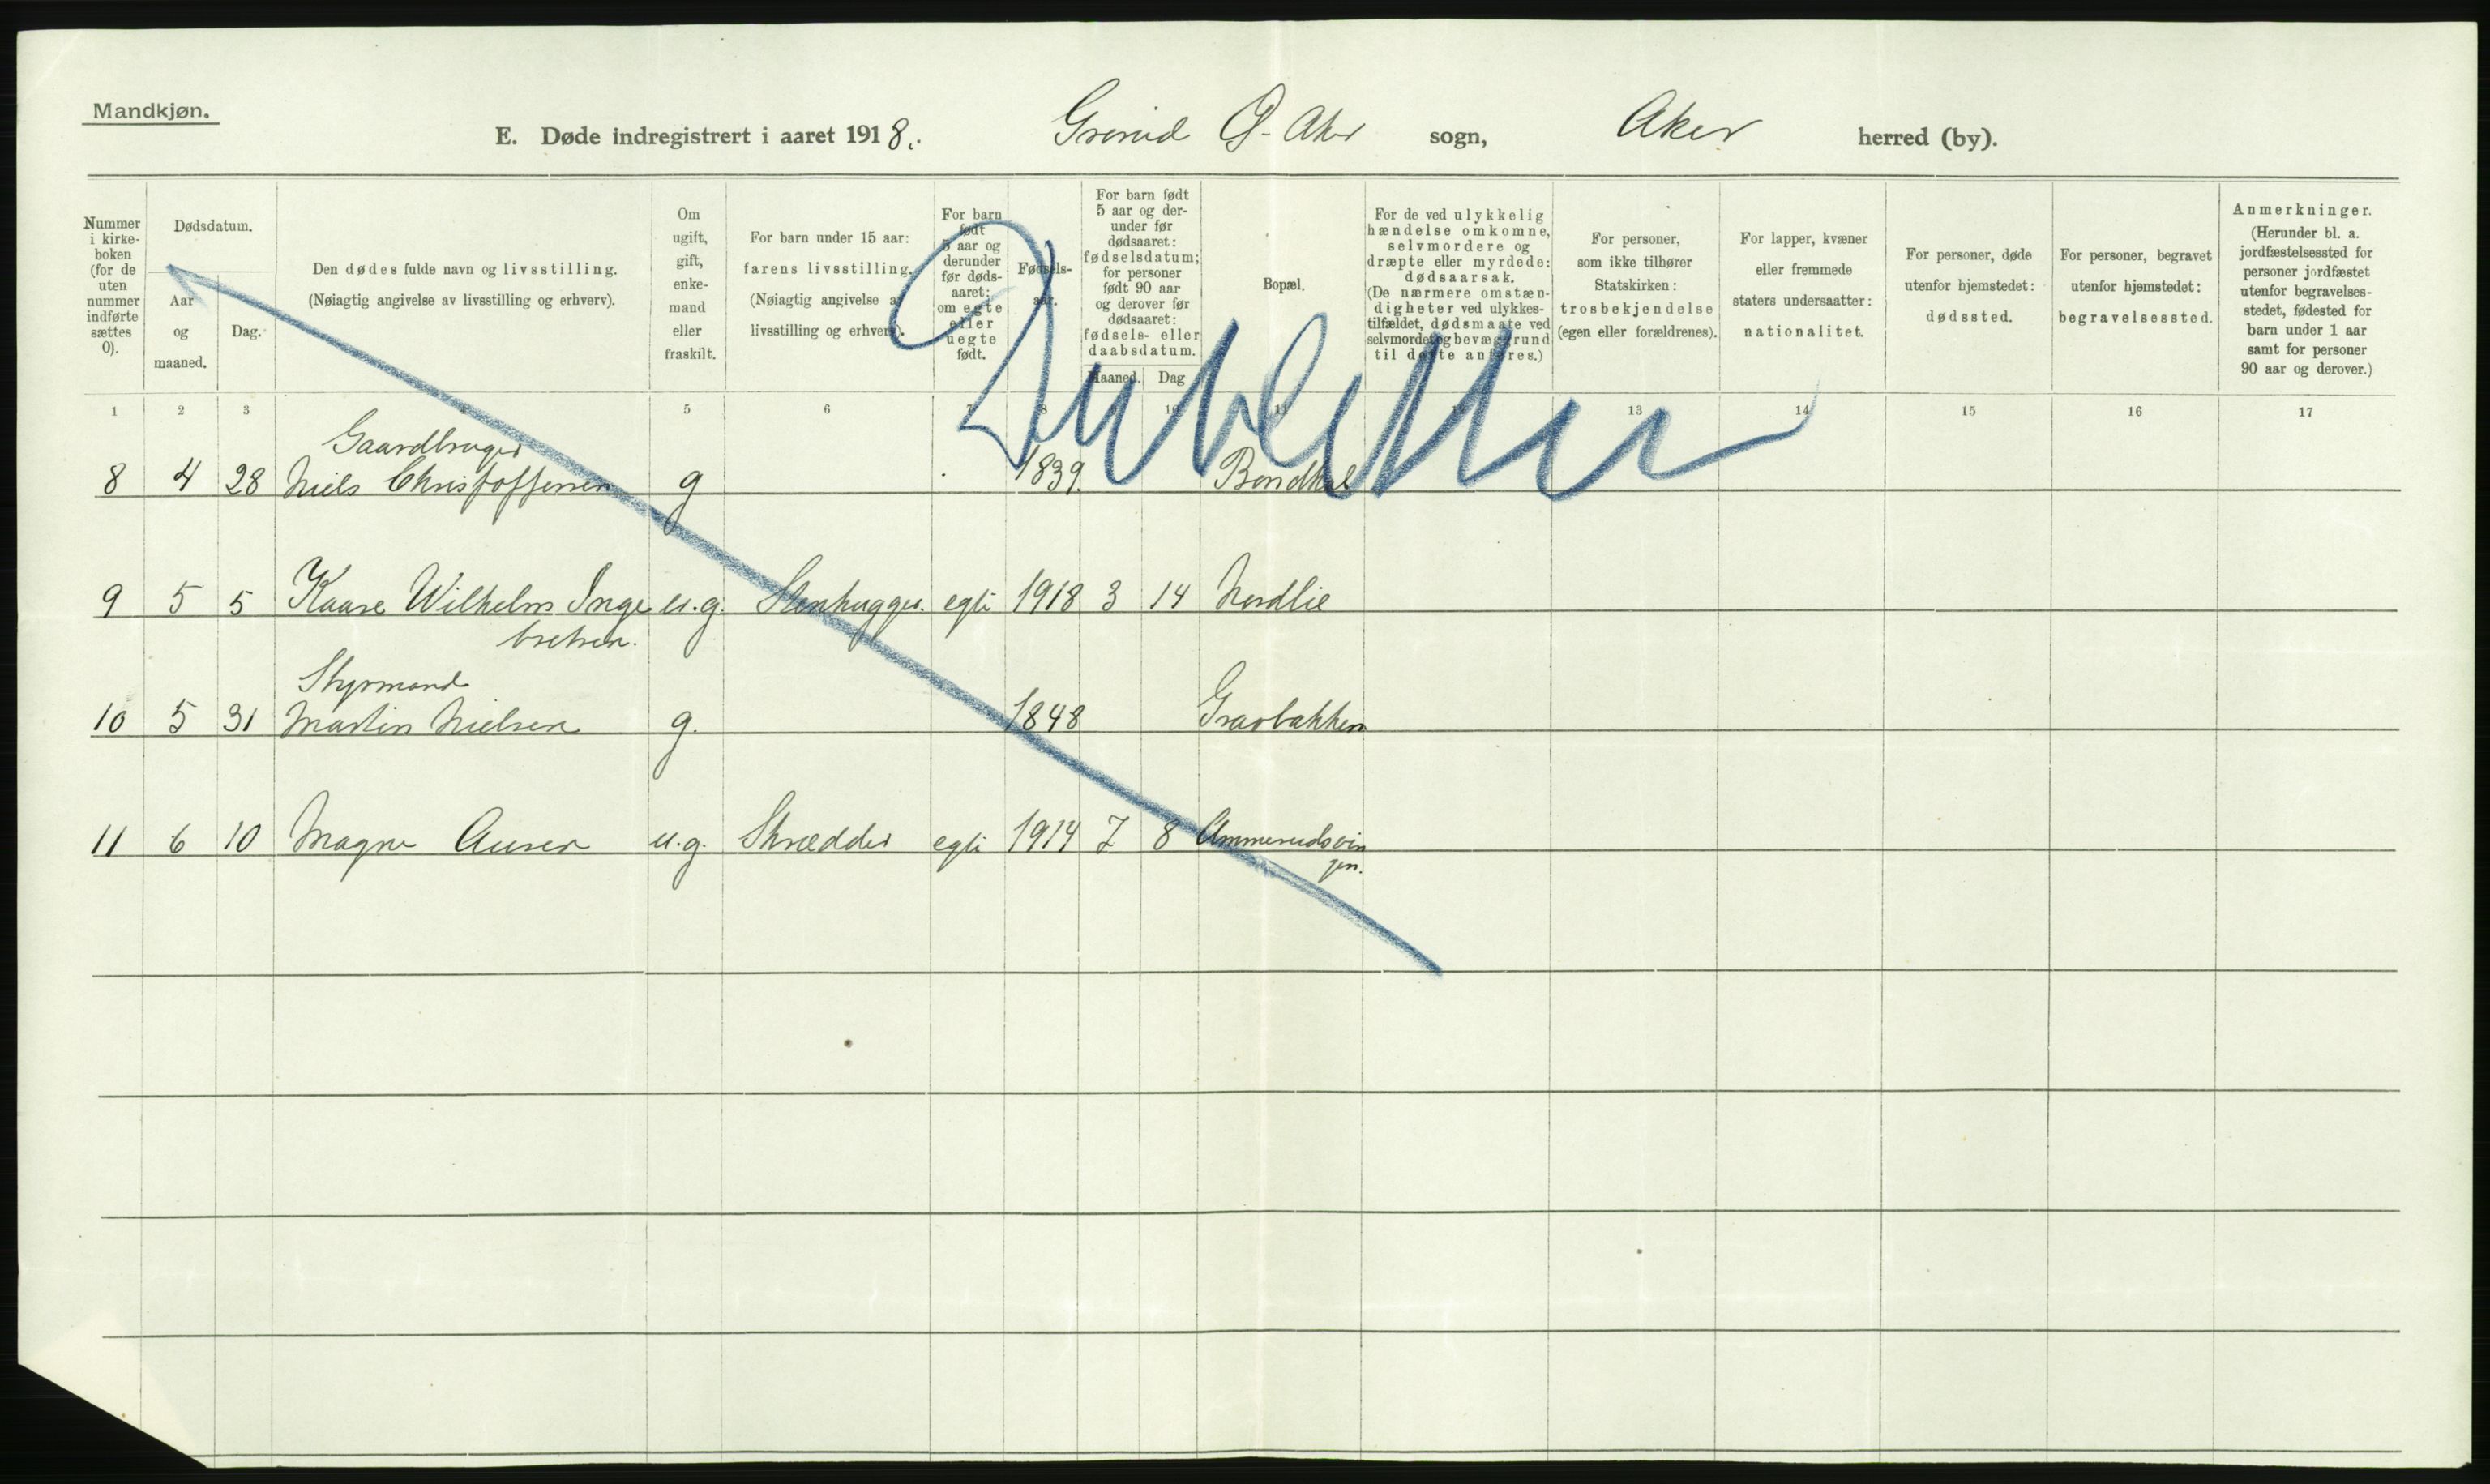 Mandkjøn.
E. Døde indregistrert i aaret 1918. Grorud Ø. Aker sogn, Aker herred (by).
Nummer i kirkeboken (for de uten nummer indførte sættes 0).
Dødsdatum.
Aar og maaned.
Dag.
Den dødes fulde navn og livsstilling.
(Nøiagtig angivelse av livsstilling og erhverv).
Om ugift, gift, enkemand eller fraskilt.
For barn under 15 aar:
farens livsstilling.
(Nøiagtig angivelse av livsstilling og erhverv).
For barn født 5 aar og derunder før dødsaaret: om egte eller uegte født.
Fødselsaar.
For barn født 5 aar og derunder før dødsaaret: fødselsdatum; for personer født 90 aar og derover før dødsaaret: fødsels- eller daabsdatum.
Maaned. Dag
Bopæl.
For de ved ulykkelig hændelse omkomne, selvmordere og dræpte eller myrdede: dødsaarsak.
(De nærmere omstændigheter ved ulykkestilfældet, dødsmaate ved selvmordet og bevæggrund til dette anføres.)
For personer, som ikke tilhører Statskirken: trosbekjendelse (egen eller forældrenes).
For lapper, kvæner eller fremmede staters undersaatter: nationalitet.
For personer, døde utenfor hjemstedet: dødssted.
For personer, begravet utenfor hjemstedet: begravelsessted.
Anmerkninger.
(Herunder bl. a. jordfæstelsessted for personer jordfæstet utenfor begravelsesstedet, fødested for barn under 1 aar samt for personer 90 aar og derover.)
Dubletter
1 2 3 4 5 6 7 8 9 10 11 12 13 14 15 16 17
Gaardbruger
8 4 28 Niels Christoffersen g 1839.
9 5 5 Kaare Wilhelm Inge u.g. Stenhugger. egte 1918 3 14 Nordlie
bretsen.
Styrmand
10 5 31 Martin Nielsen g. 1848 Gravbakken
11 6 10 Magne u.g. Skrædder egte 1914 7 8 Ammerudsvin
gen.